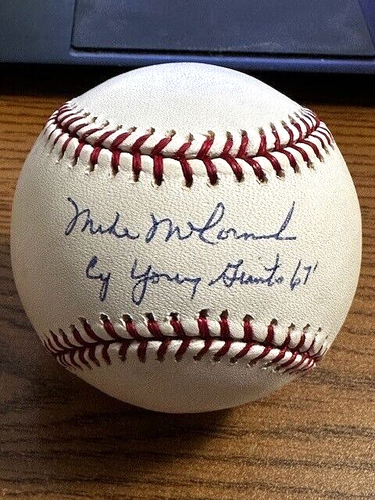 Mike McCormick
Cy Young Giants 67'